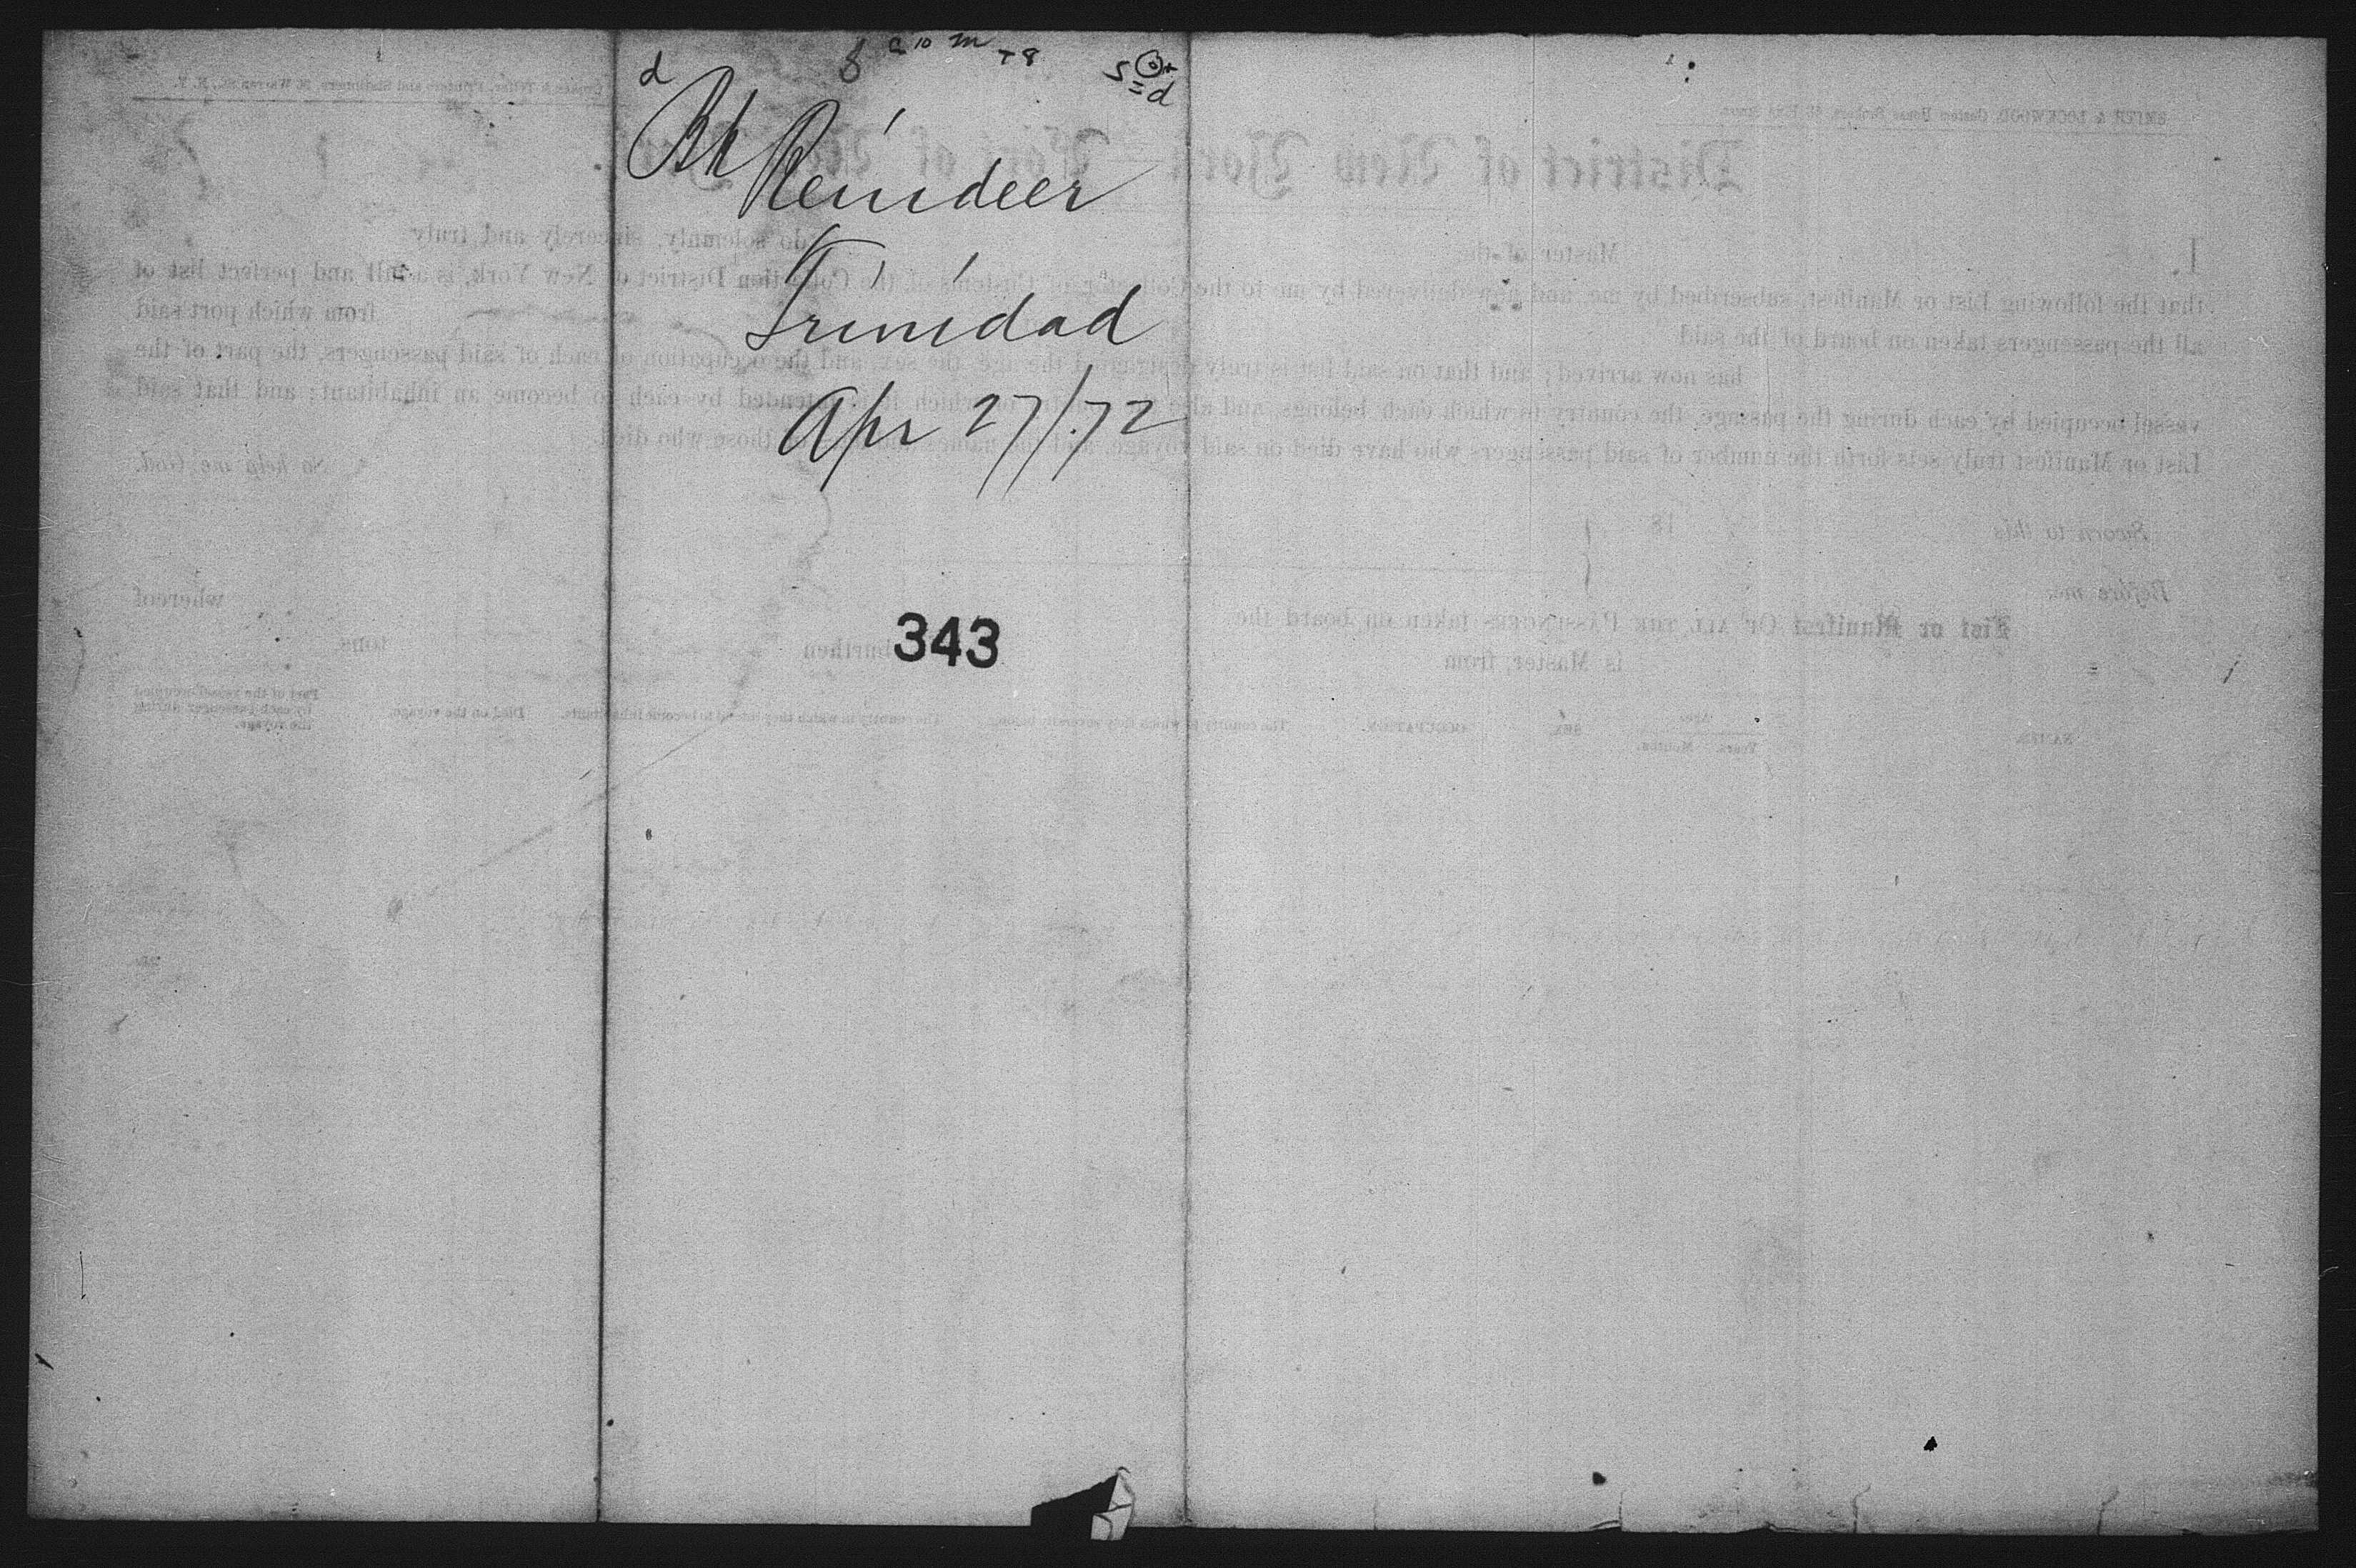 Bk Reindeer
Trinidad
Apr 27/72
343
District of New York Port of New York.
SMITH & LOCKWOOD, Custom House Brokers
I, Master of the do solemnly, sincerely and truly
that the following List or Manifest, subscribed by me, and now delivered by me to the Collector of Customs of the Collection District of New York, is a full and perfect list of
all the passengers taken on board of the said from which port said
has now arrived; and that on said list is truly designated the age, the sex, and the occupation of each of said passengers, the part of the
vessel occupied by each during the passage, the country to which each belongs, and also the country of which it is intended by each to become an inhabitant; and that said
List or Manifest truly sets forth the number of said passengers who have died on said voyage, and the names and ages of those who died.
So help me God.
Sworn to this 18
Before me,
List or Manifest OF ALL THE PASSENGERS taken on board the whereof
is Master, from burthen tons
NAMES. AGE. Years. Months. SEX. OCCUPATION. The country to which they severally belong. The country in which they intend to become inhabitants. Died on the voyage. Part of the vessel occupied by each passenger during the voyage.